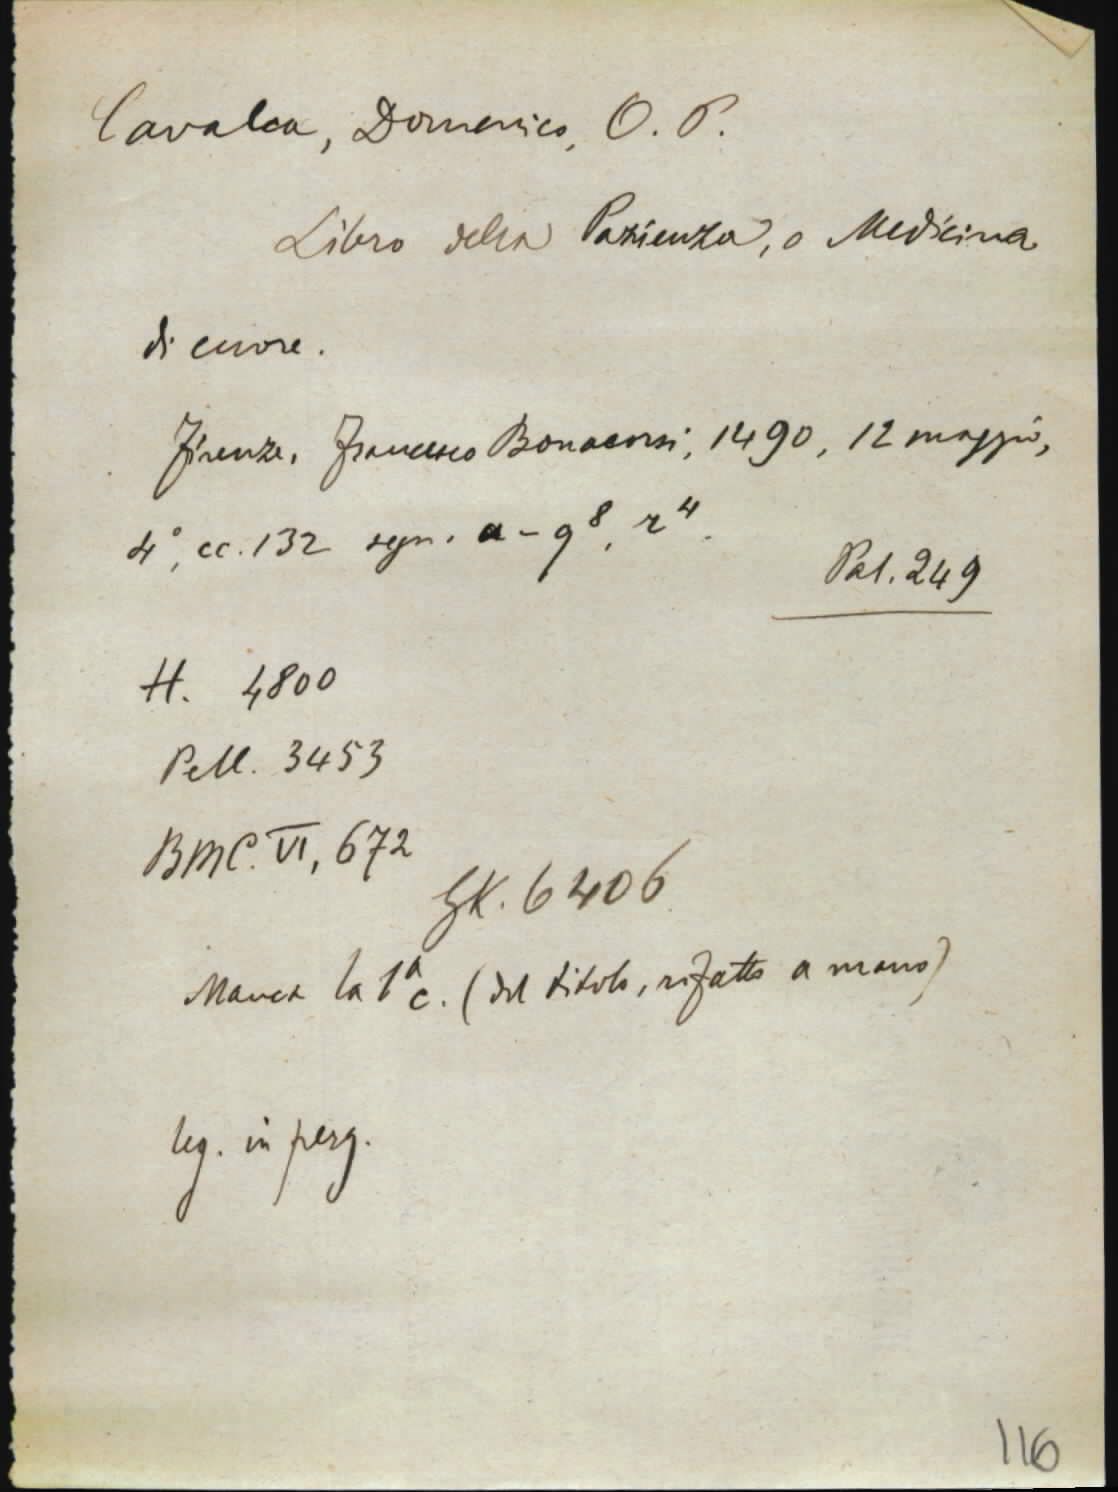 Cavalca, Domenico, O. P.
Libro della Pazienza, o Medicina
di cuore.
Firenze, Francesco Bonacorsi, 1490, 12 maggio,
4°, cc. 132 segn. a-q⁸, r⁴.
Pal. 249
H. 4800
Pell. 3453
BMC. VI, 672
GK. 6406
Manca la 1ª c. (del titolo, rifatto a mano)
leg. in perg.
116